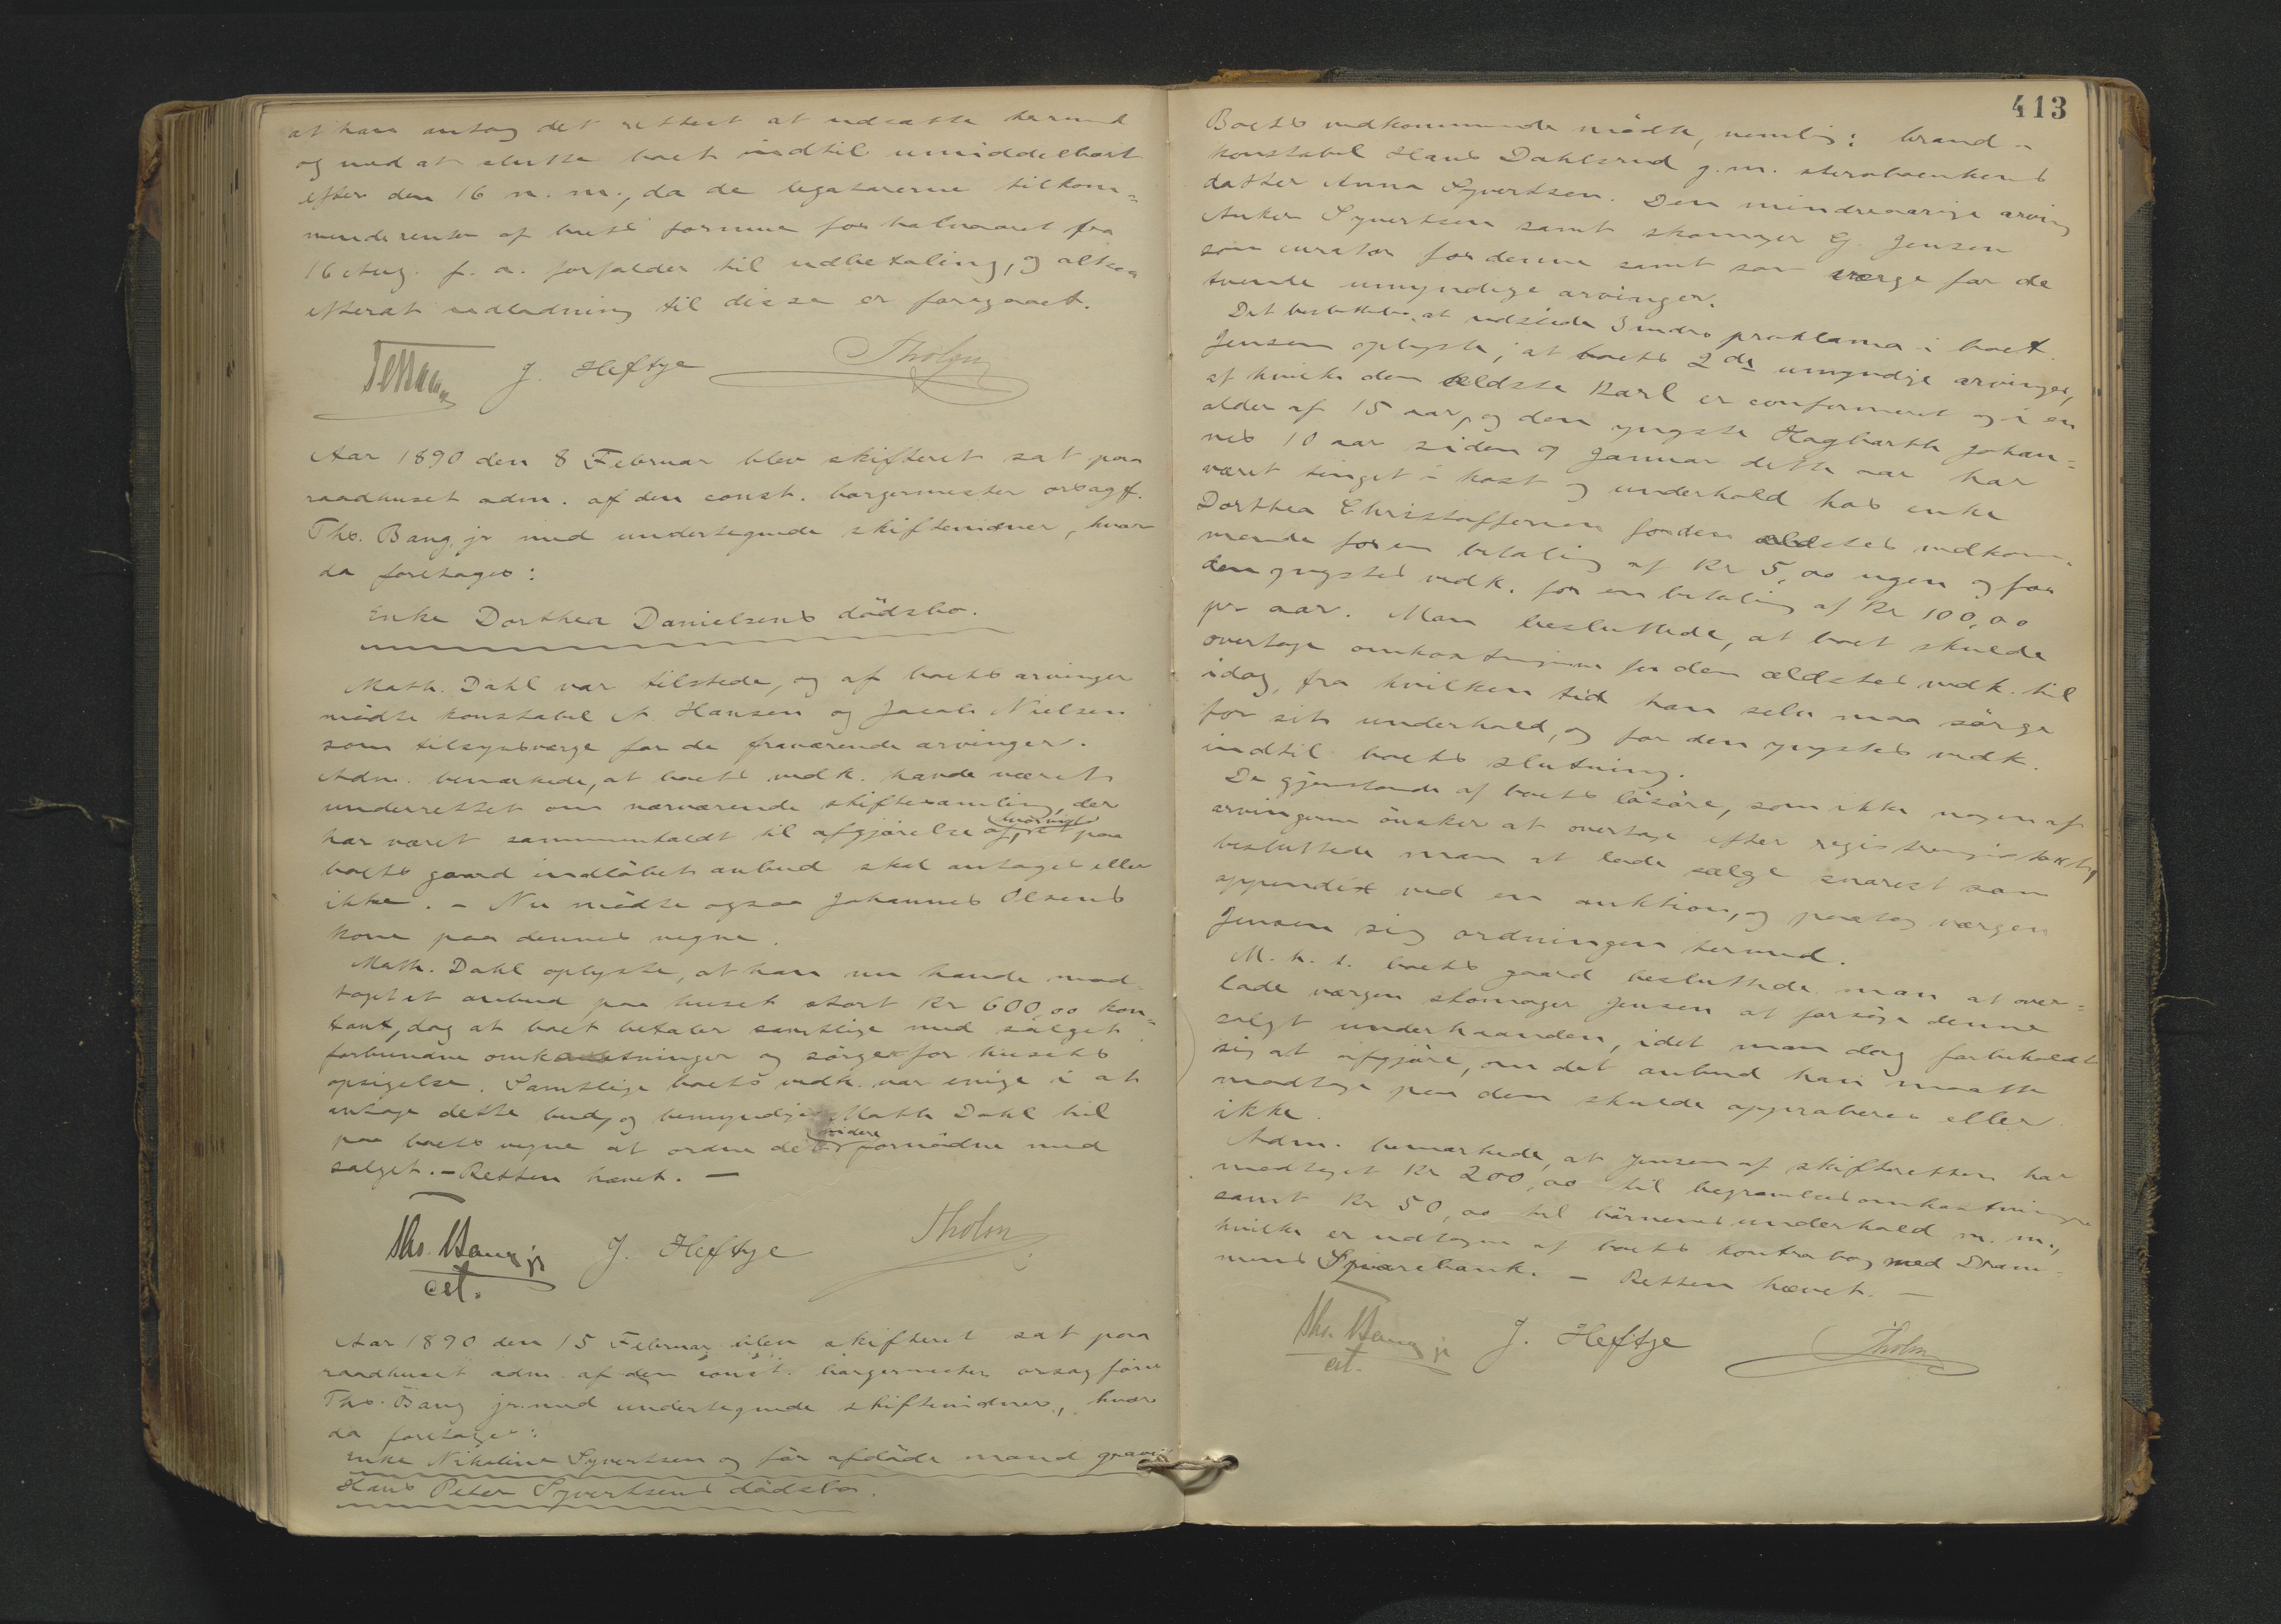 at han antog det rettest at udsætte hermed
og med at slutte boet indtil umiddelbart
efter den 16 n. m., da de legatarerne tilkom=
mende renter af boets formue for halvaaret fra
16 Aug. f. a. forfalder til udbetaling, og altsaa
efterat udladning til disse er foregaaet.
J. Heftye Tholm
Aar 1890 den 8 Februar blev skifteret sat paa
raadhuset adm. af den const. borgermester orsagf.
Ths. Bang jr med undertegnede skiftevidner, hvor
da foretoges:
Enke Dorthea Danielsens dödsbo.
Math. Dahl var tilstede, og af boets arvinger
mödte konstabel A. Hansen og Jacob Nielsen
som tilsynsværge for de fraværende arvinger.
Adm. bemærkede, at boets vedk. havde været
underrettet om nærværende skiftesamling, der
har været sammenkaldt til afgjörelse af, hvorvidt et paa
boets gaard indlöbet anbud skal antages eller
ikke. - Nu mödte ogsaa Johannes Olsens
kone paa dennes vegne.
Math. Dahl oplyste, at han nu havde mod=
taget et anbud paa huset stort Kr 600,00 kon=
tant, dog at boet betaler samtlige med salget
forbundne omkostninger og sörger for husets
opsigelse. Samtlige boets vedk. var enige i at
antage dette bud, og bemyndiges Math Dahl til
paa boets vegne at ordne det videre fornödne med
salget. - Retten hævet. -
Ths. Bang jr J. Heftye Tholm
cst.
Aar 1890 den 15 Februar blev skifteret sat paa
raadhuset adm. af den const. borgermester orsagförer
Ths. Bang jr. med undertegnede skiftevidner, hvor
da foretoges:
Enke Nikoline Syvertsen og för afdöde mand
Hans Peter Syvertsens dödsbo.
413
Boets vedkommende mödte, nemlig: brand-
konstabel Hans Dahlsrud g. m. sterboenkens
datter Anna Syvertsen. Den mindreaarige arving
Anker Syvertsen samt skomager G. Jensen
som curator for denne samt som værge for de
tvende umyndige arvinger.
Det besluttedes at udstede 3 mdrs proklama i boet.
Jensen oplyste, at boets 2de umyndige arvinger,
af hvilke den ældste Karl er confirmeret og i en
alder af 15 aar, og den yngste Hagbarth Johan=
nes 10 aar siden 9 Januar dette aar har
været tinget i kost og underhold hos enke
Dorthea Christoffersen for den ældstes vedkom=
mende for en betaling af Kr 5,00 ugen og for
den yngstes vedk. for en betaling af Kr 100,00
pr aar. Man besluttede, at boet skulde
overtage omkostningerne for den ældstes vedk. til
idag, fra hvilken tid han selv maa sörge
for sit underhold, og for den yngstes vedk.
indtil boets slutning.
De gjenstande af boets lösöre, som ikke nogen af
arvingerne önsker at overtage efter registreringstakst,
besluttede man at lade sælge snarest som
appendix ved en auktion, og paatog værgen
Jensen sig ordningen hermed.
M. h. t. boets gaard besluttede man at over=
lade værgen skomager Jensen at forsöge denne
solgt underhaanden, idet man dog forbeholdt
sig at afgjöre, om det anbud han maatte
modtage paa den skulde approberes eller
ikke.
Adm. bemærkede, at Jensen af skifteretten har
modtaget Kr 200,00 til begravelsesomkostninger
samt Kr 50,00 til börnenes underhold m. m.,
hvilke er udtagne af boets kontrabog med Dram=
mens Sparebank. - Retten hævet. -
Ths. Bang jr J. Heftye Tholm
cst.